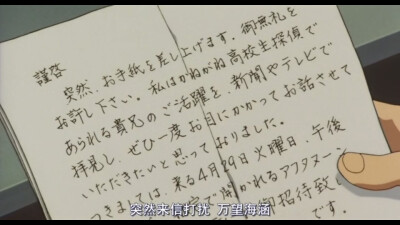 謹啓
突然、お手紙を差し上げます。御無礼を
お許し下さい。私はかねがね高校生探偵で
あられる貴兄のご活躍を、新聞やテレビで
拝見し、ぜひ一度お目にかかってお話させて
いただきたいと思っておりました。
つきましては、来る4月29日火曜日、午後
で開かれるアフタヌーン
招待致し
です。
突然来信打扰 万望海涵